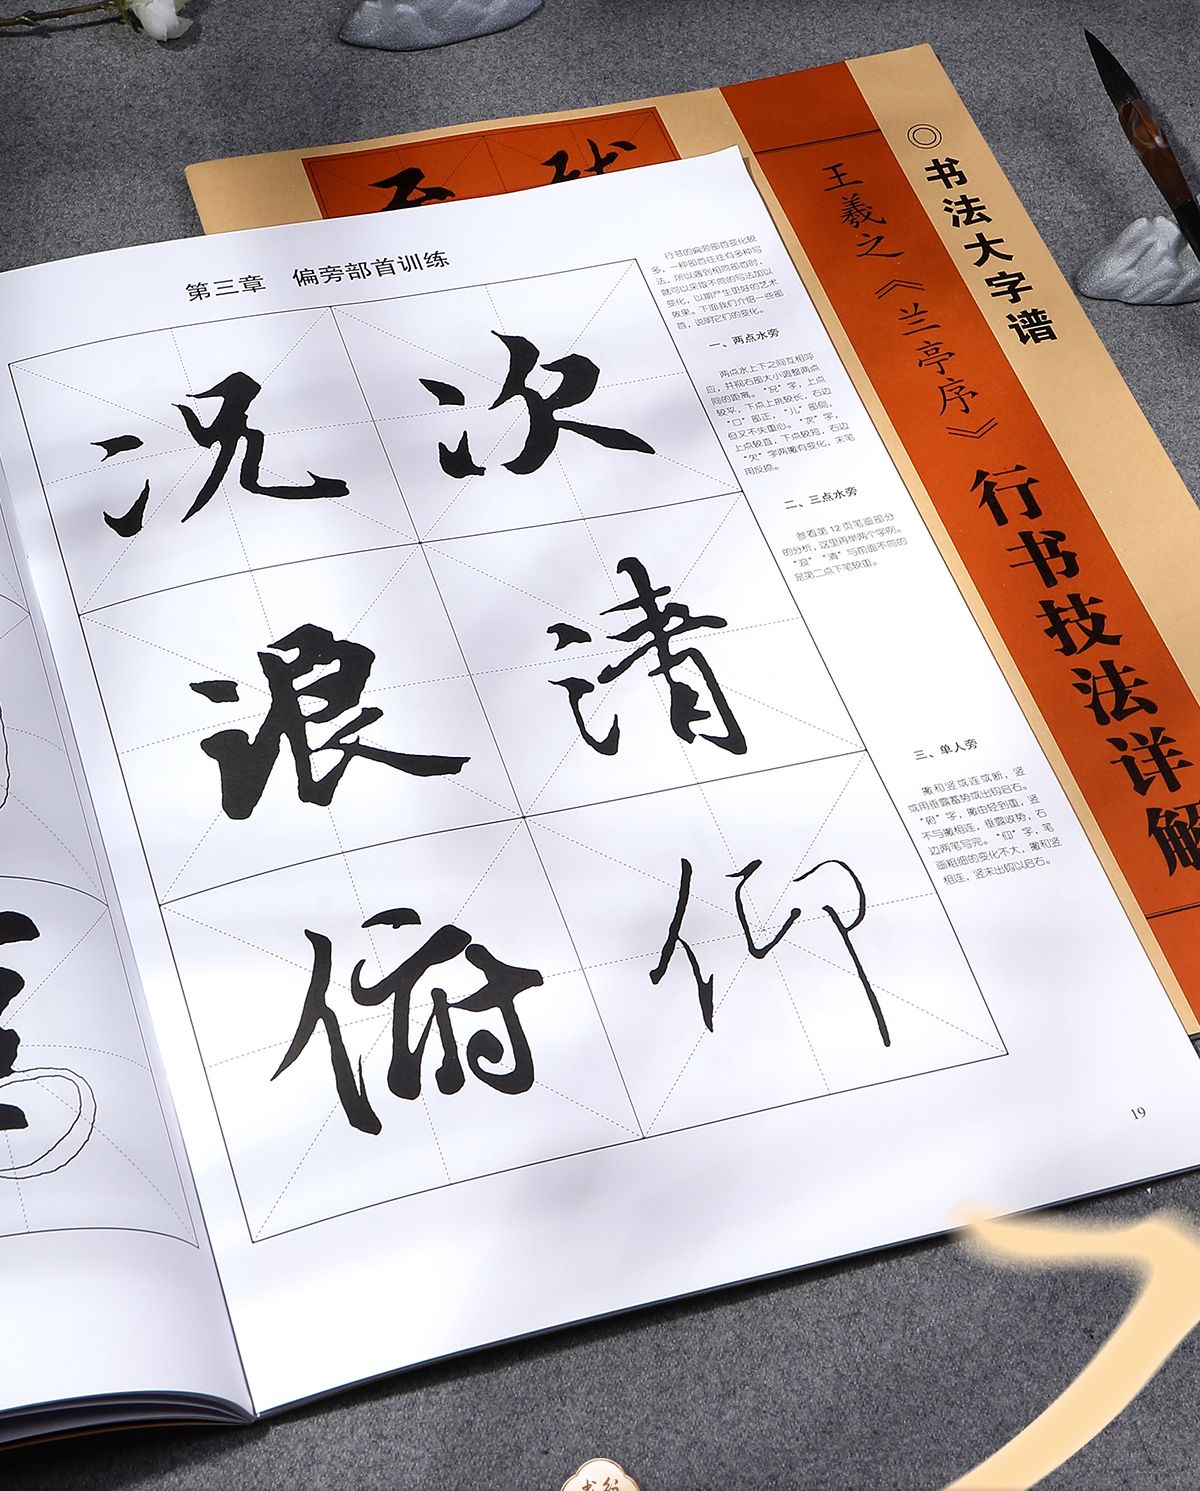 书法大字谱
王羲之《兰亭序》
行书技法详解
第三章 偏旁部首训练
况次
浪清
俯仰
行书的偏旁部首变化较
多，一种部首往往有多种写
法，所以遇到相同部首时，
就可以采取不同的写法加以
变化，以期产生更好的艺术
效果。下面我们介绍一些部
首，说明它们的变化。
一、两点水旁
两点水上下之间互相呼
应，并视右部大小调整两点
间的距离。“况”字，上点
较平，下点上挑较长，右边
“口”部正，“儿”部侧，
但又不失重心。“次”字，
上点较直，下点较短，右边
“欠”字两撇有变化，末笔
用反捺。
二、三点水旁
参看第12页笔画部分
的分析，这里再举两个字例。
“浪”“清”与前面不同的
是第二点下笔较重。
三、单人旁
撇和竖或连或断，竖
或用垂露蓄势或出钩启右。
“俯”字，撇由轻到重，竖
不与撇相连，垂露收势，右
边两笔写完。“仰”字，笔
画粗细的变化不大，撇和竖
相连，竖末出钩以启右。
19